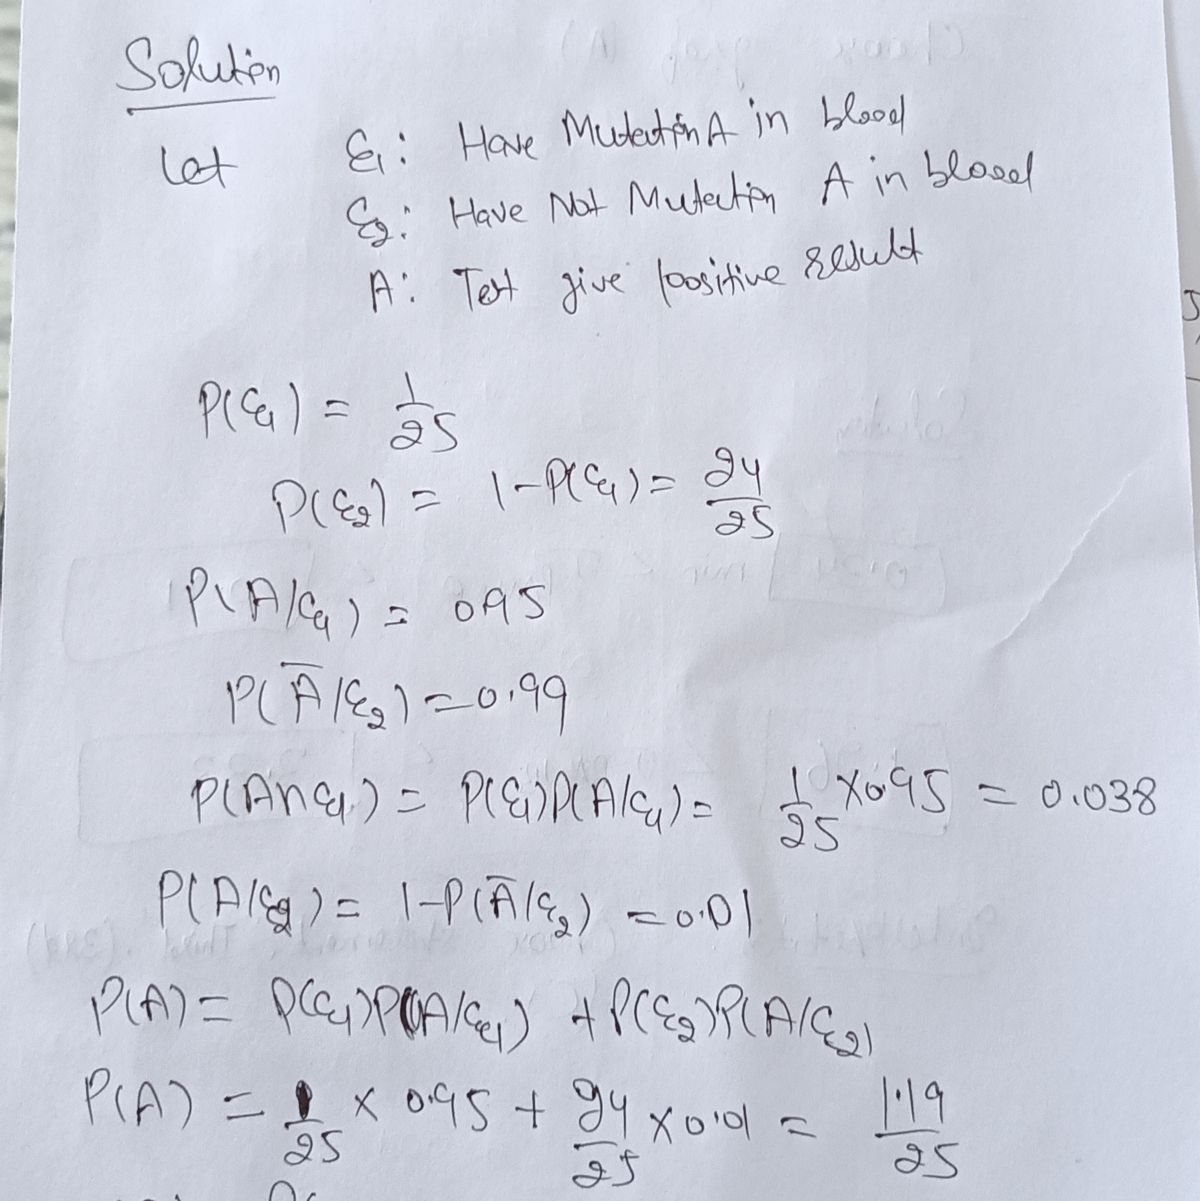 Solution
Let E₁: Have Mutection A in blood
E₂: Have Not Mutection A in blood
A: Test give positive result
P(E₁) = 1/25
P(E₂) = 1-P(E₁) = 24/25
P(A/E₁) = 0.95
P(A̅/E₂) = 0.99
P(A∩E₁) = P(E₁)P(A/E₁) = 1/25 × 0.95 = 0.038
P(A/E₂) = 1-P(A̅/E₂) = 0.01
P(A) = P(E₁)P(A/E₁) + P(E₂)P(A/E₂)
P(A) = 1/25 × 0.95 + 24/25 × 0.01 = 1.19/25